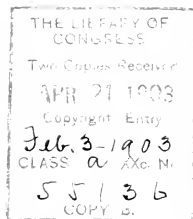 THE LIBRARY OF
CONGRESS
Two Copies Received
APR 21 1903
Copyright Entry
Feb. 3-1903
CLASS a XXc. No.
5 5 1 3 6
COPY B.